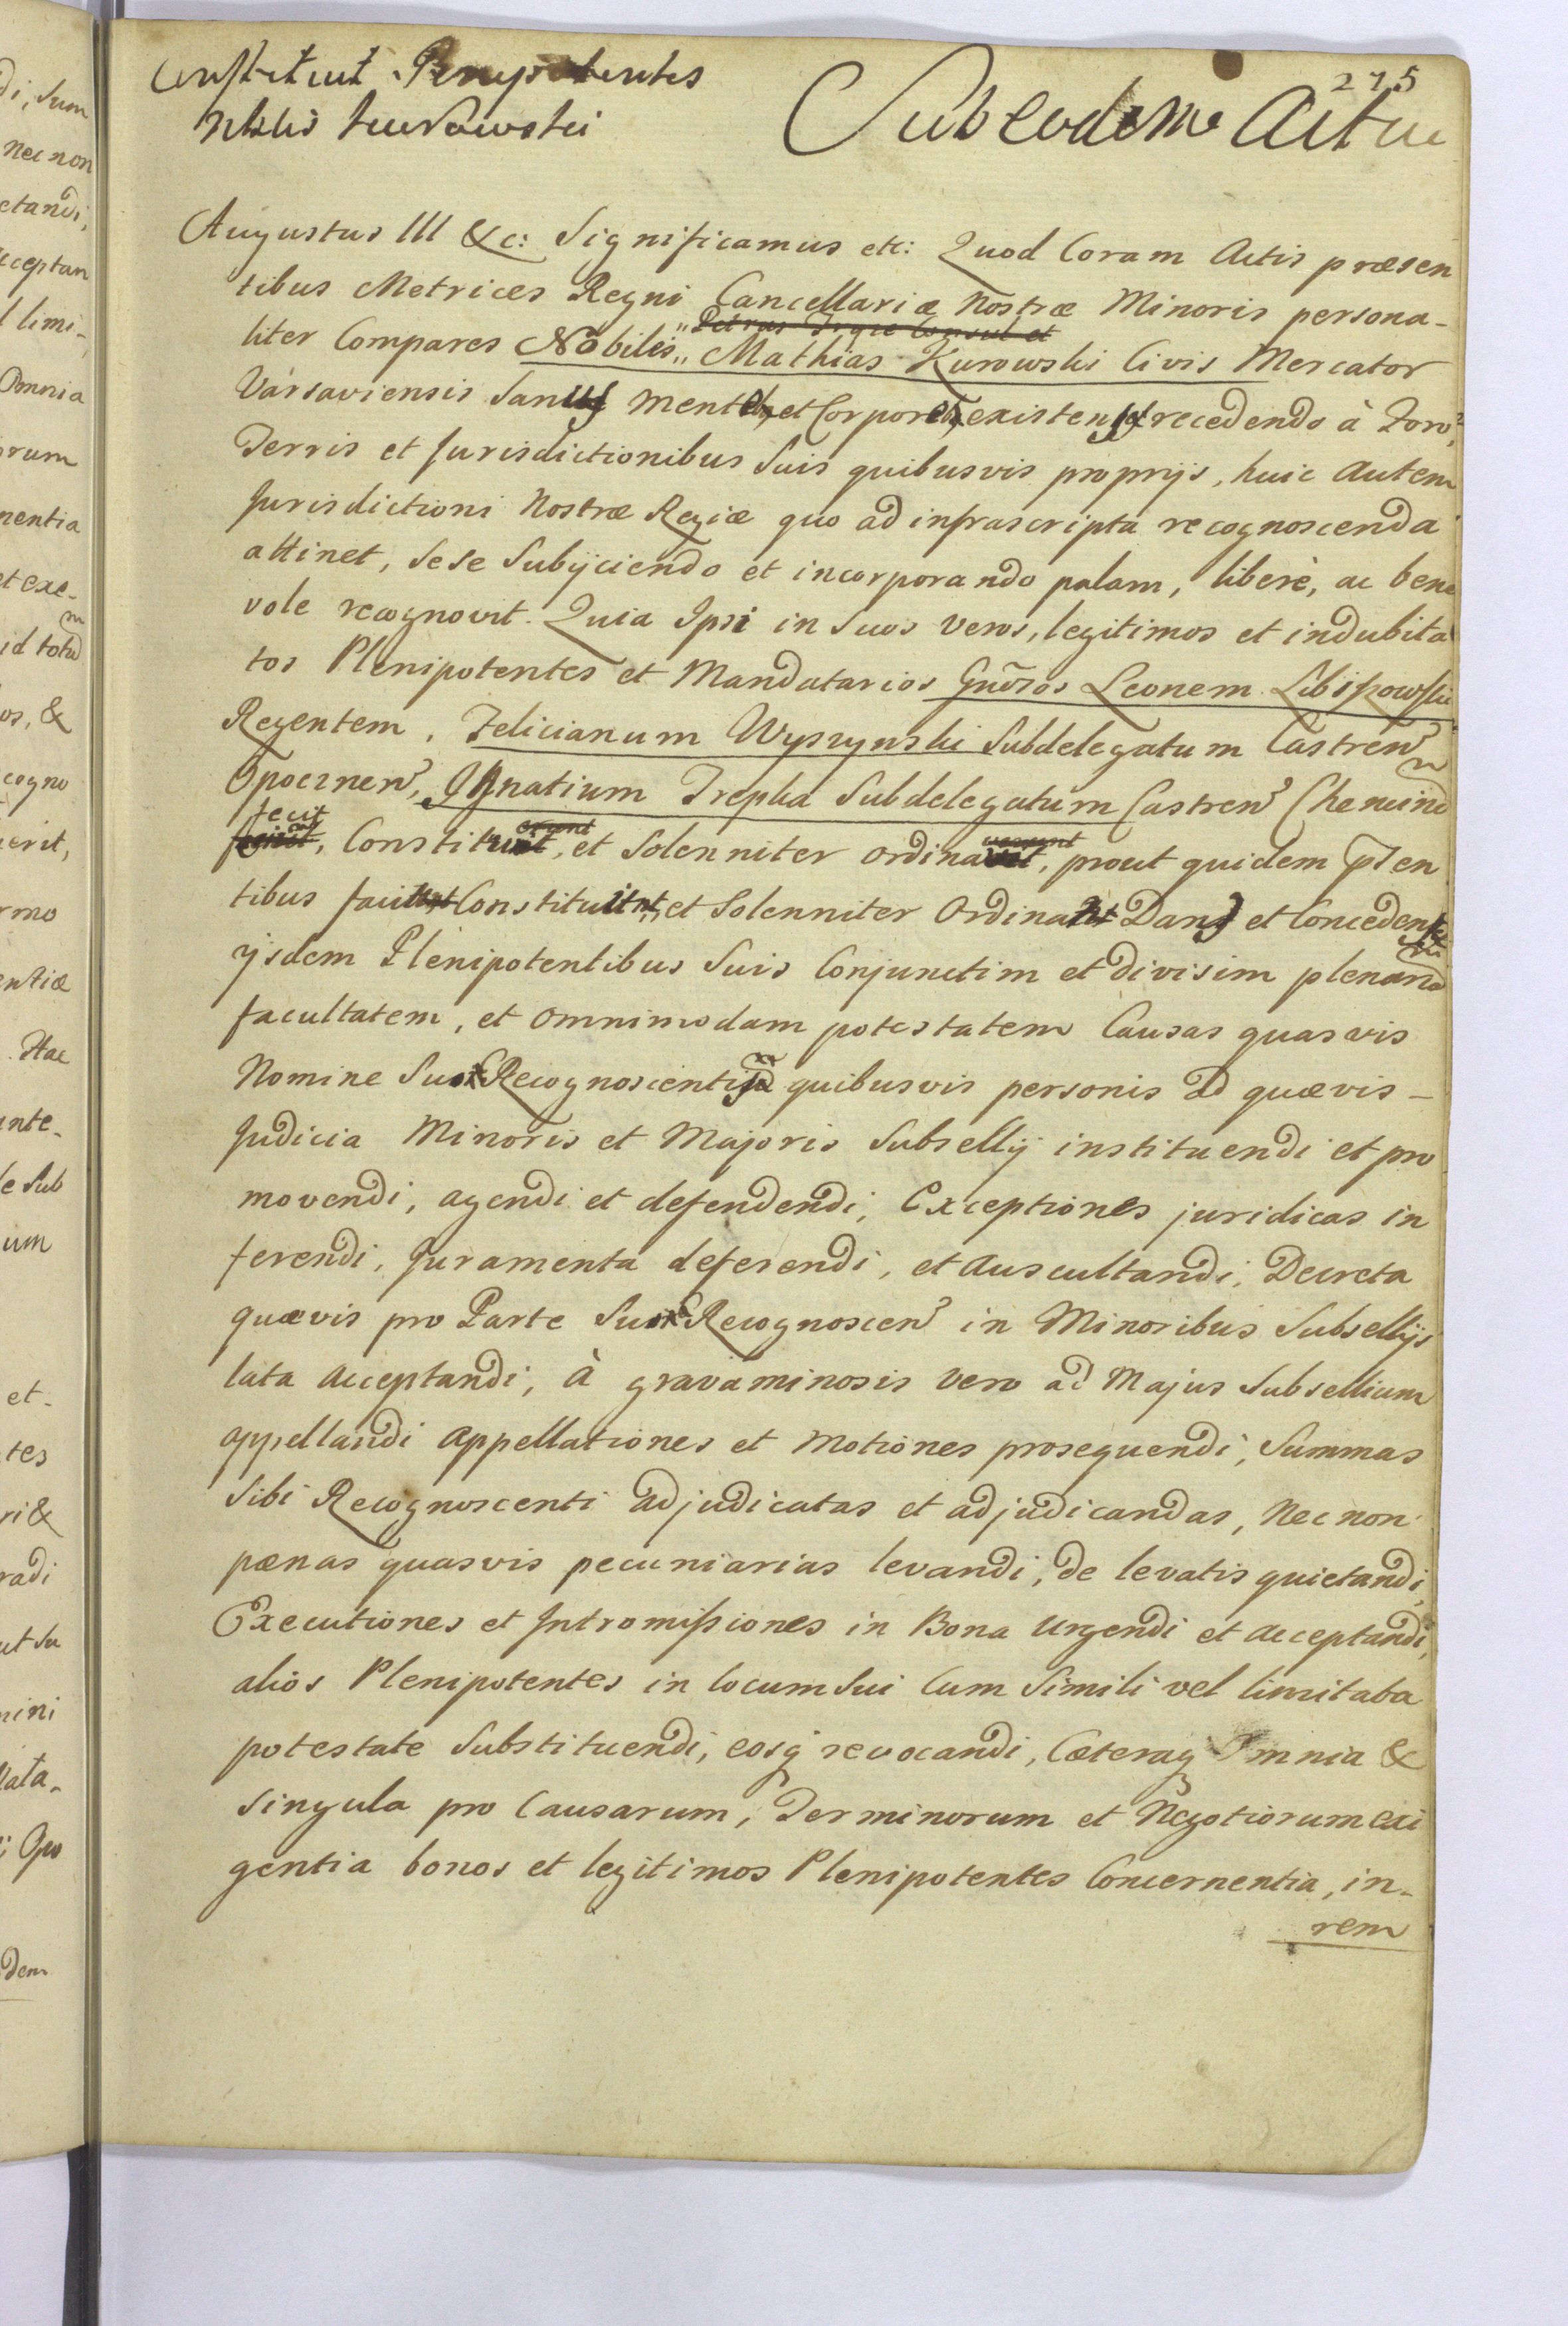 275
Constituit Plenipotentes
Nblis Kurowski
Sub eodem Actu
Augustus III &c: Significamus etc: Quod Coram Actis præsen
tibus Metrices Regni Cancellariæ Nostræ Minoris persona-
Petrus Consul et
liter Compares Nobilis,, Mathias Kurowski Civis Mercator
Varsaviensis Sanus mente, et Corpore, existens recedendo à Foro,
Terris et Jurisdictionibus Suis quibusvis proprijs, huic autem
Jurisdictioni Nostræ Regiæ quo ad infrascripta recognoscenda
attinet, sese Subijciendo et incorporando palam, liberè, ac bene
vole recognovit. Quia Ipsi in Suos veros, legitimos et indubita
tos Plenipotentes et Mandatarios Gnrsos Leonem Libiszowski
Regentem, Felicianum Wyszynski Subdelegatum Castren
Opocznen, Ignatium Trepka Subdelegatum Castren Chencin
fecit
, Constituit, et Solenniter ordinavit, prout quidem pñsen
tibus facit Constituit, et Solenniter Ordinat Dans et Concedens
ijsdem Plenipotentibus Suis Conjunctim et divisim plenam
facultatem, et omnimodam potestatem Causas quasvis
Nomine Suo Recognoscentis quibusvis personis ad quævis -
Judicia Minoris et Majoris Subsellij instituendi et pro
movendi, agendi et defendendi, Exceptiones juridicas in
ferendi, Juramenta deferendi, et auscultandi, Decreta
quævis pro Parte Sua Recognoscen in Minoribus Subsellijs
lata acceptandi, à gravaminosis vero ad Majus Subsellium
appellandi appellationes et Motiones prosequendi, Summas
Sibi Recognoscenti adjudicatas et adjudicandas, Nec non
pænas quasvis pecuniarias levandi, de levatis quietandi,
Executiones et Intromissiones in Bona Urgendi et acceptandi,
alios Plenipotentes in locum Sui Cum Simili vel limitata
potestate Substituendi, eosq revocandi, Cæteraq Omnia &
Singula pro Causarum, Terminorum et Negotiorum exi
gentia bonos et legitimos Plenipotentes Concernentia, in-
rem